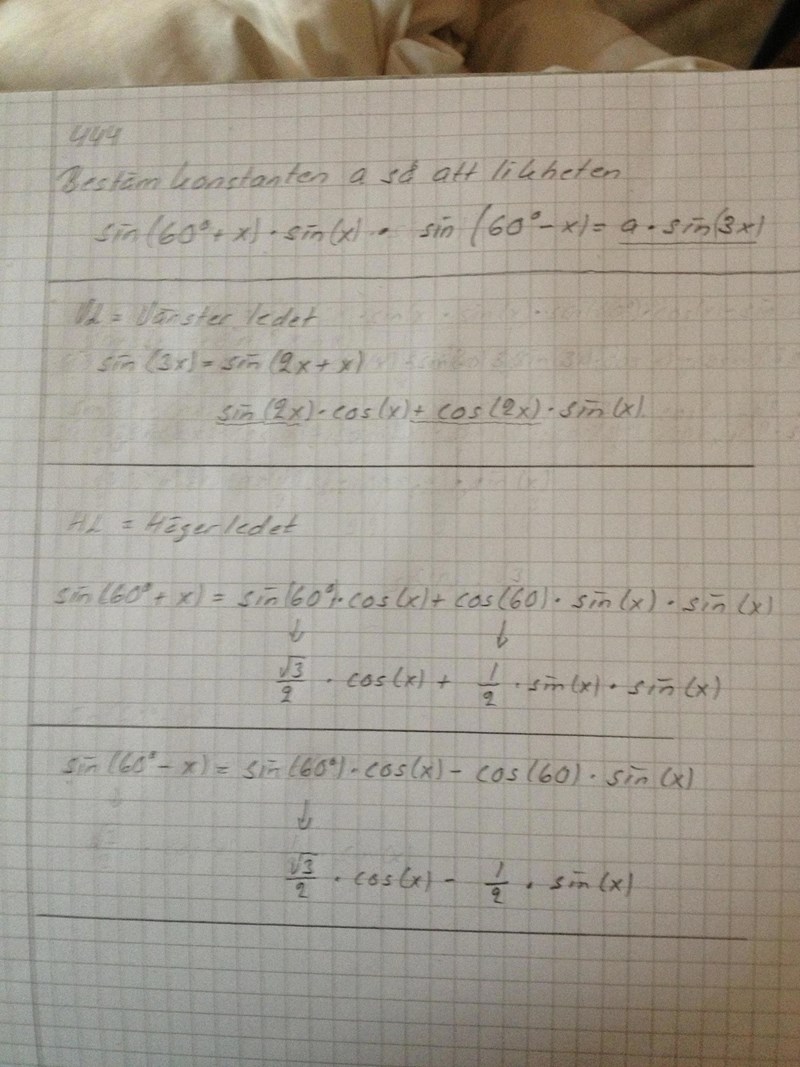 444
Bestäm konstanten a så att likheten
sin(60°+x)·sin(x)· sin(60°-x)= a·sin(3x)
VL = Vänster ledet
sin(3x)=sin(2x+x)
sin(2x)·cos(x)+ cos(2x)·sin(x).
HL = Högerledet
sin(60°+x)= sin(60°)·cos(x)+ cos(60)·sin(x)·sin(x)
↓ ↓
√3/2 · cos(x)+ 1/2 ·sin(x)·sin(x)
sin(60°-x)= sin(60°)·cos(x)- cos(60)·sin(x)
↓
√3/2 · cos(x)- 1/2 · sin(x)